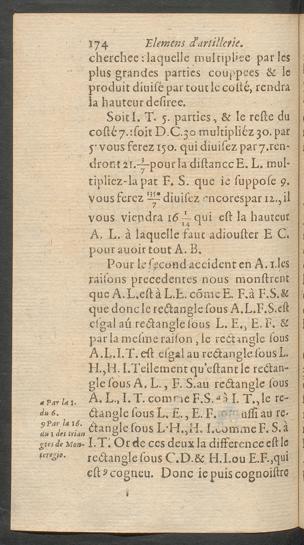 174 Elemens d'artillerie.
cherchee : laquelle multipliee par les
plus grandes parties couppees & le
produit diuisé par tout le costé, rendra
la hauteur desiree.
Soit I. T. 5. parties, & le reste du
costé 7. : soit D. C. 30 multipliéz 30. par
5 vous ferez 150. qui diuisez par 7. ren-
dront 21. 3/7 pour la distance E. L. mul-
tipliez-la par F. S. que ie suppose 9.
vous ferez 1350/7 diuisez encores par 12., il
vous viendra 16 1/14 qui est la hauteur
A. L. à laquelle faut adiouster E C.
pour auoir tout A. B.
Pour le second accident en A. 1. les
raisons precedentes nous monstrent
que A. L. est à L. E. cōme E. F. à F. S. &
que donc le rectangle sous A. L. F. S. est
esgal au rectangle sous L. E., E. F. &
par la mesme raison, le rectangle sous
A. L. I. T. est esgal au rectangle sous L.
H., H. I. Tellement qu'estant le rectan-
gle sous A. L., F. S. au rectangle sous
A. L., I. T. comme F. S. à I. T., le re-
ctangle sous L. E., E. F. aussi au re-
ctangle sous L. H., H. I. comme F. S. à
I. T. Or de ces deux la difference est le
rectangle sous C. D. & H. I. ou E. F., qui
est 9 cogneu. Donc ie puis cognoistre
a Par la 1.
du 6.
9 Par la 16.
du 1 des trian
gles de Mon-
teregio.